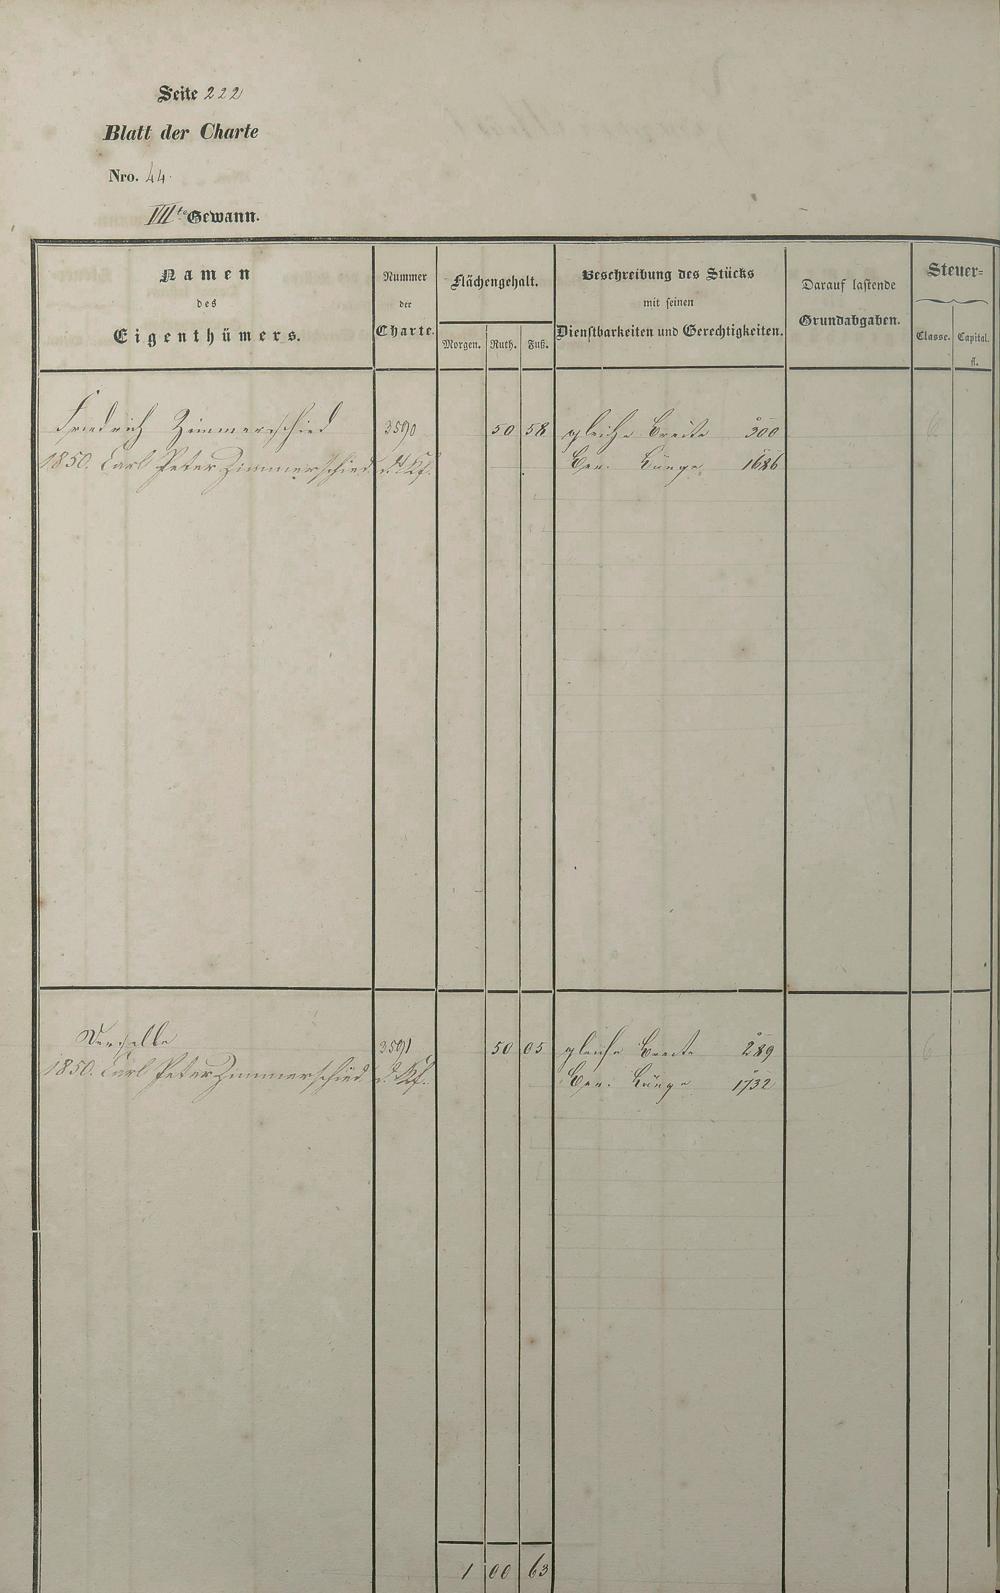 Seite 222
Blatt der Charte
Nro. 44.
VII te Gewann.
Namen
des
Eigenthümers.
Nummer
der
Charte.
Flächengehalt.
Morgen. Ruth. Fuß.
Beschreibung des Stücks
mit seinen
Dienstbarkeiten und Gerechtigkeiten.
Darauf lastende
Grundabgaben.
Steuer=
Classe. Capital.
fl.
Friedrich Zimmerschied 3590 50 58 gleiche Breite 300 6
1850. Carl Peter Zimmerschied Kf. Länge 1686
Derselbe 3591 50 05 gleiche Breite 289 6
1850. Carl Peter Zimmerschied d. Kf. Länge 1732
1 00 63